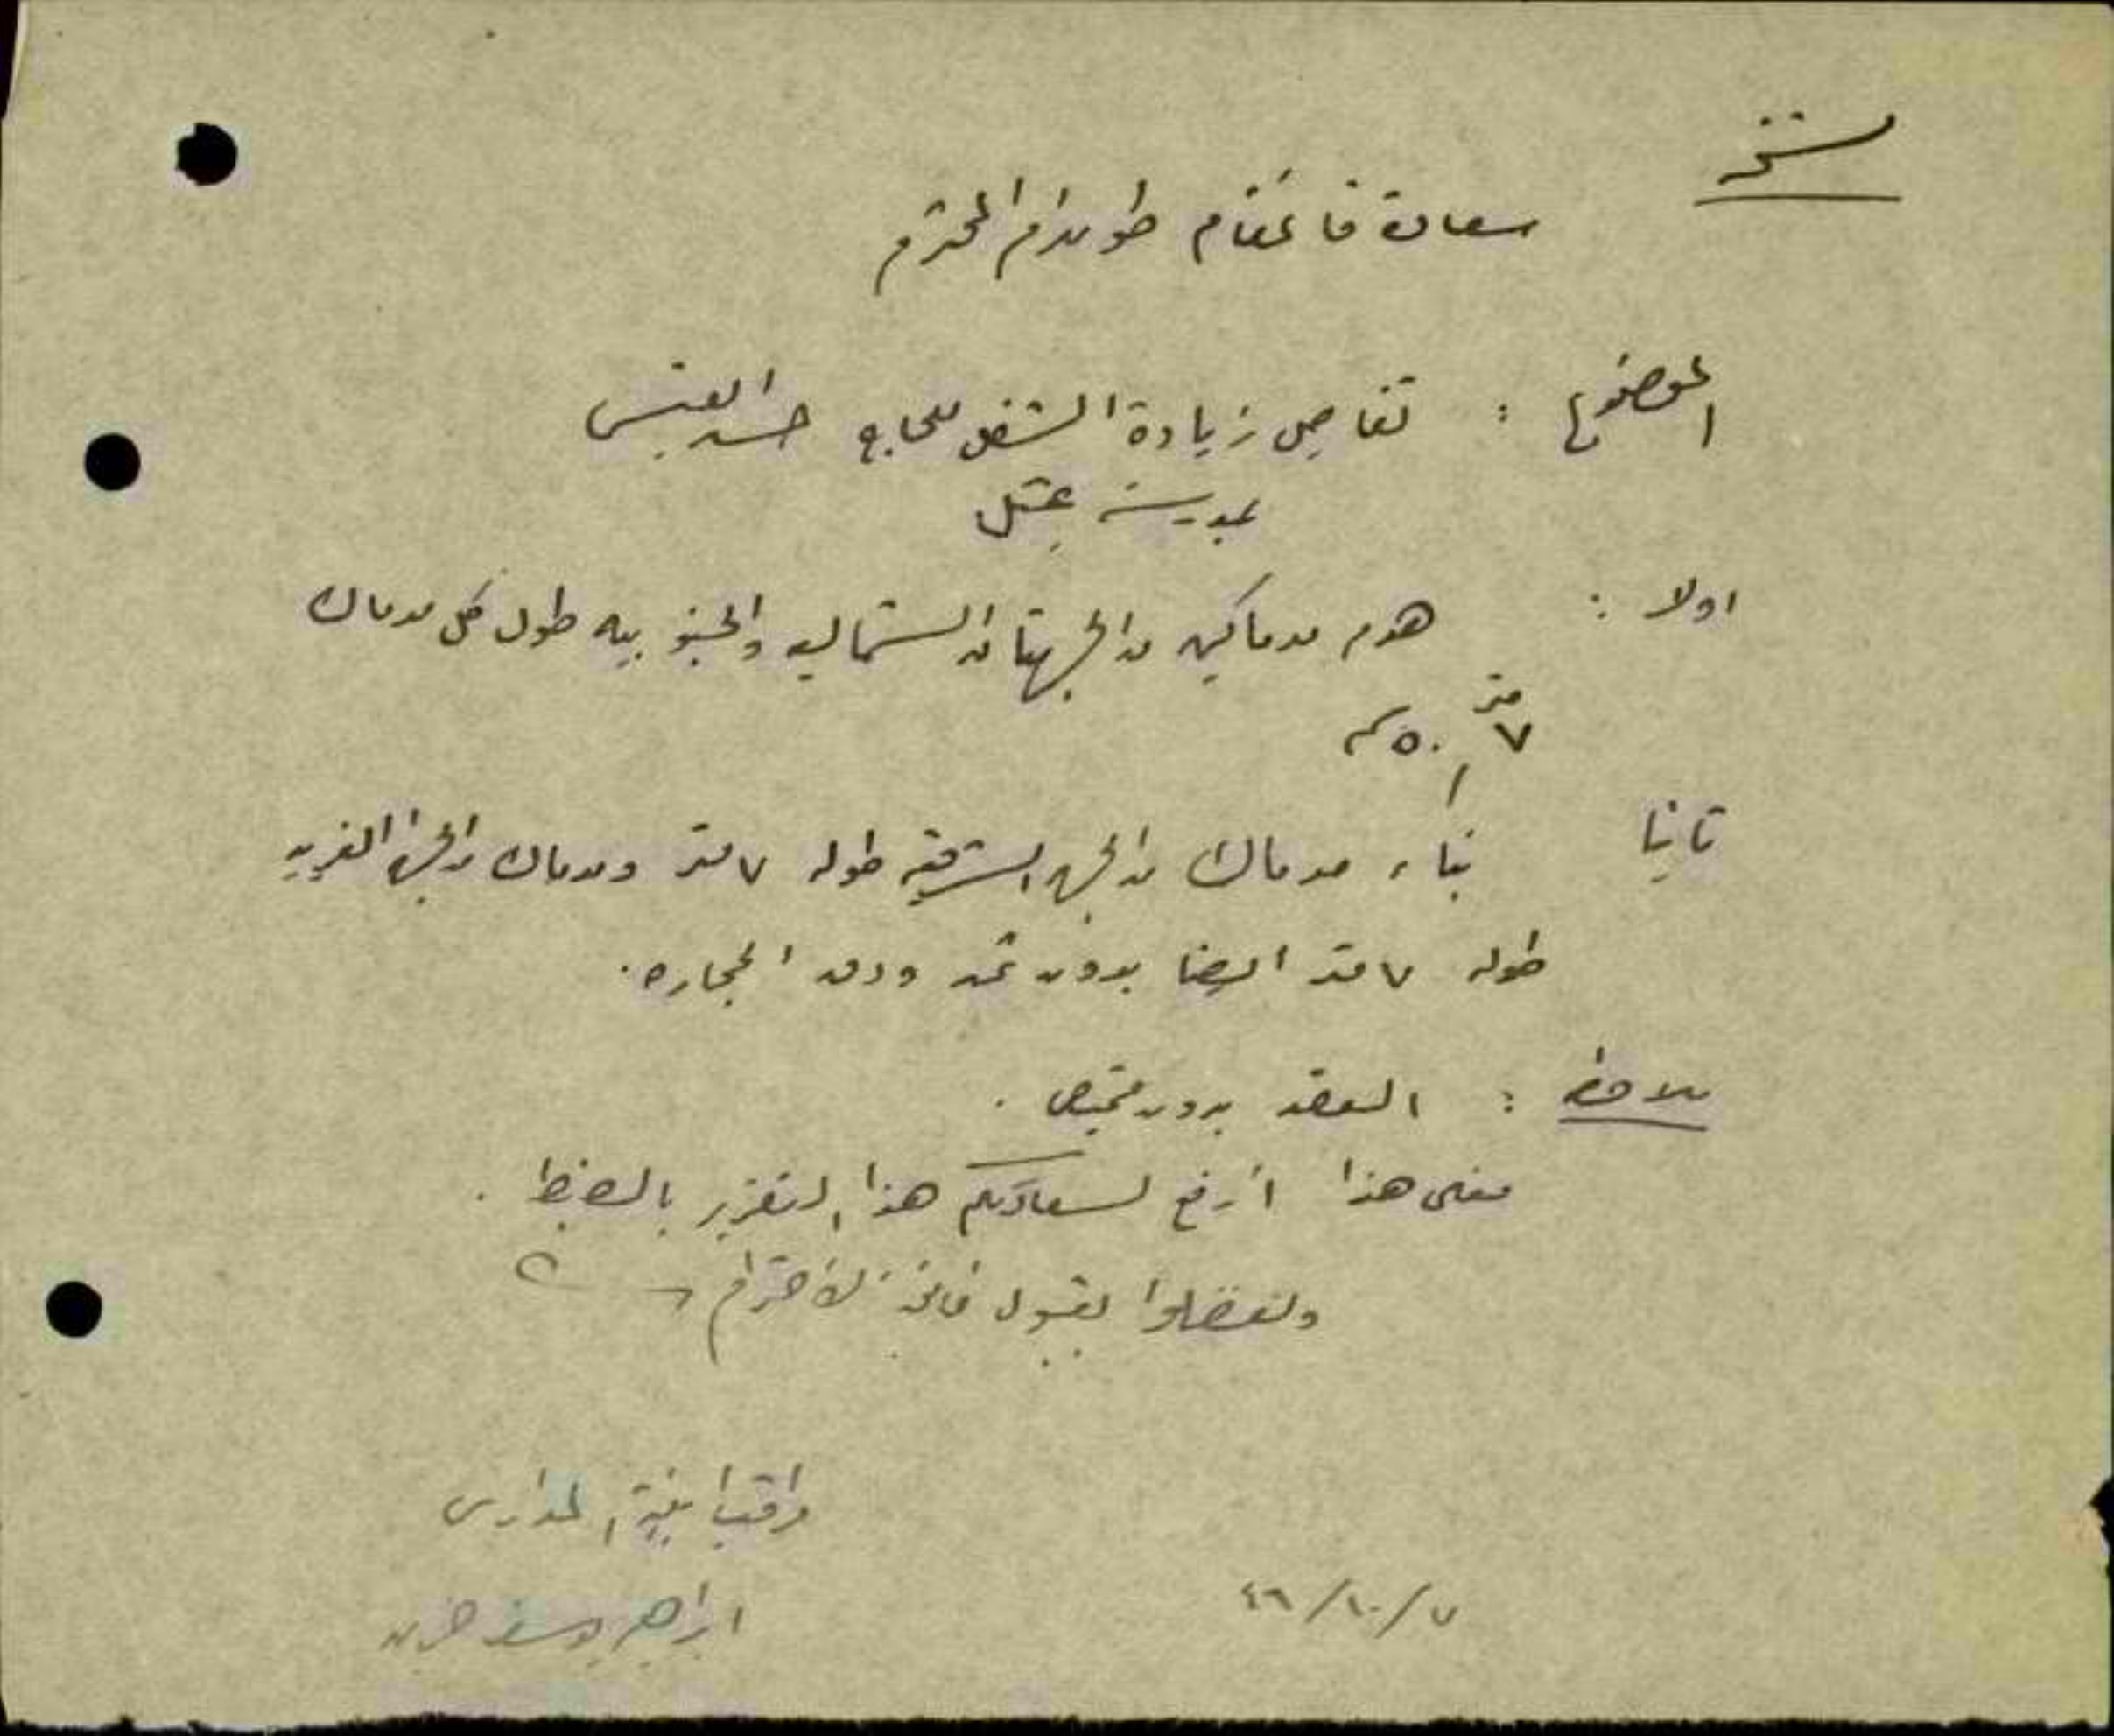 نسخه
سعادة قائمقام طولكرم المحترم
الموضوع : تفاصيل زيادة الشغل للحاج حسن القبس
بمدرسة عتيل
اولا : هدم مدماكين من الجهتان الشماليه والجنوبيه طول كل مدماك
٧ متر ٥٠ سم
ثانيا بناء مدماك من الجهه الشرقيه طوله ٧ متر ومدماك من الجهة الغربيه
طوله ٧ متر ايضا بدون ثمن ودق الحجاره .
ملاحظه : العقد بدون قميص .
فعلى هذا أرفع لسعادتكم هذا التقرير بالضبط .
وتفضلوا بقبول فائق الاحترام
مراقب ابنية المدارس
ابراهيم يوسف
٧/١٠/٤٦